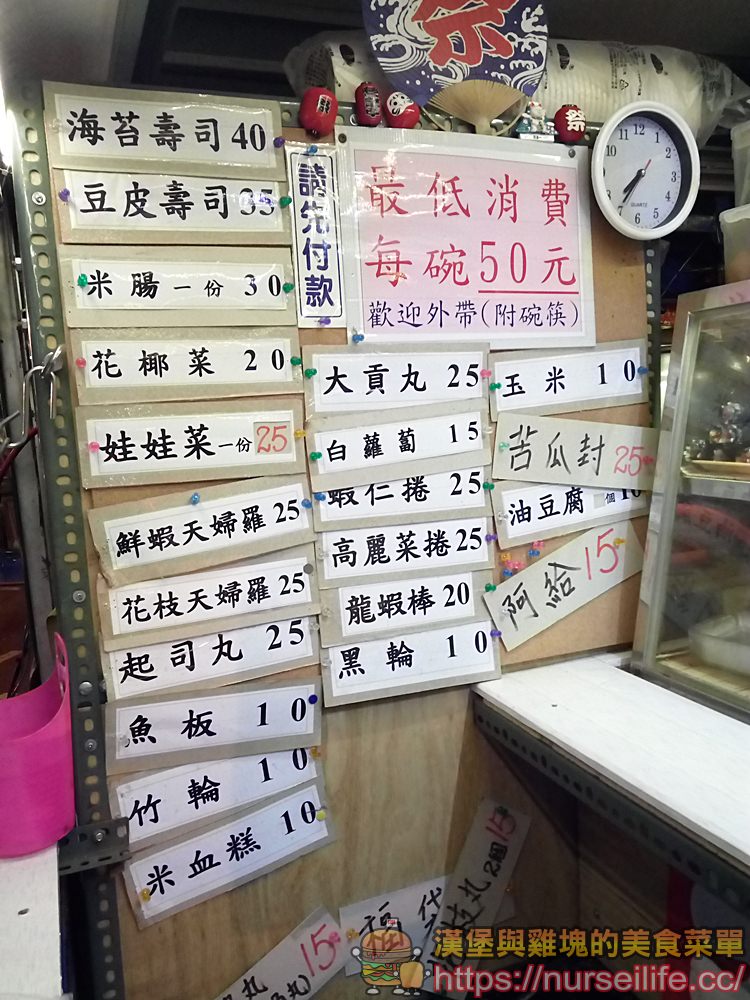 祭
祭
海苔壽司 40
豆皮壽司 35
米腸 一份 30
花椰菜 20
娃娃菜 一份 25
鮮蝦天婦羅 25
花枝天婦羅 25
起司丸 25
魚板 10
竹輪 10
米血糕 10
請先付款
最低消費
每碗50元
歡迎外帶(附碗筷)
大貢丸 25
白蘿蔔 15
蝦仁捲 25
高麗菜捲 25
龍蝦棒 20
黑輪 10
玉米 10
苦瓜封 25
油豆腐 個 10
阿給 15
12
11
10
9
8
7
6
5
4
3
2
1
QUARTZ
丸 15
丸)
福
丸 2個 15
漢堡與雞塊的美食菜單
https://nurseilife.cc/